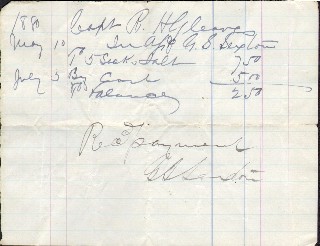 1880 Capt R. H Gleaves
May 10 In Apt G. S. Sexton
To 5 Sack Salt 7.50
July 5 By Cash 5.00
To Balance 2.50
Recd payment
G S Sexton